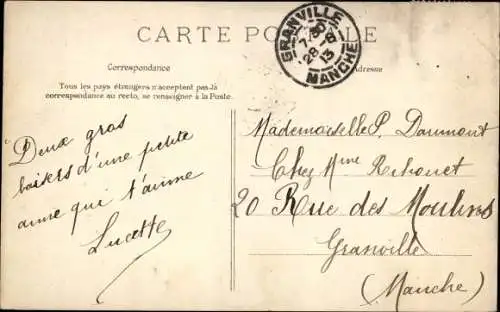 CARTE POSTALE
GRANVILLE
7/30
28-8
13
MANCHE
Correspondance
Adresse
Tous les pays étrangers n'acceptent pas-là
correspondance au recto, se renseigner à la Poste.
Deux gros
baisers d'une petite
amie qui t'aime
Lucette
Mademoiselle P. Daumont
Chez Mme Rihouet
20 Rue des Moulins
Granville
(Manche)